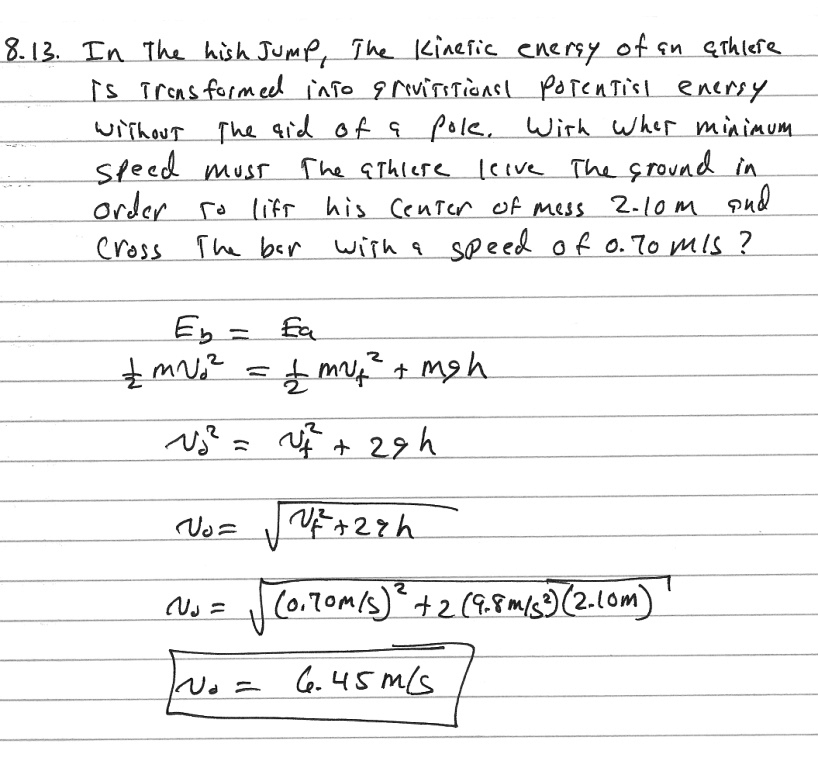 8.13. In The high Jump, The Kinetic energy of an athlete
is Transformed into gravitational Potential energy
without The aid of a Pole. With what minimum
speed must The athlete leave The ground in
order to lift his center of mass 2.10 m and
Cross The bar with a speed of 0.70 m/s ?
E_b = E_a
½ mv₀² = ½ mv_f² + mgh
v₀² = v_f² + 2gh
v₀ = √(v_f² + 2gh)
v₀ = √((0.70m/s)² + 2(9.8m/s²)(2.10m))
v₀ = 6.45 m/s